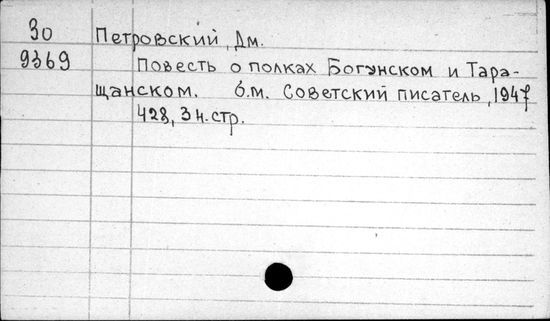 30 Петровский, Дм.
9369 Повесть о полках Богунском и Тара-
щанском. б.м. Советский писатель, 1947
428, 3 н. стр.